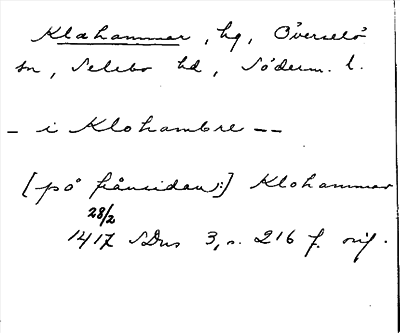 Klahammar, hg, Överselö
sn, Selebo hd, Söderm. l.
- i Klohambre --
[på frånsidan:] Klohammar
28/2
1417 SDns 3, s. 216 f. orig.